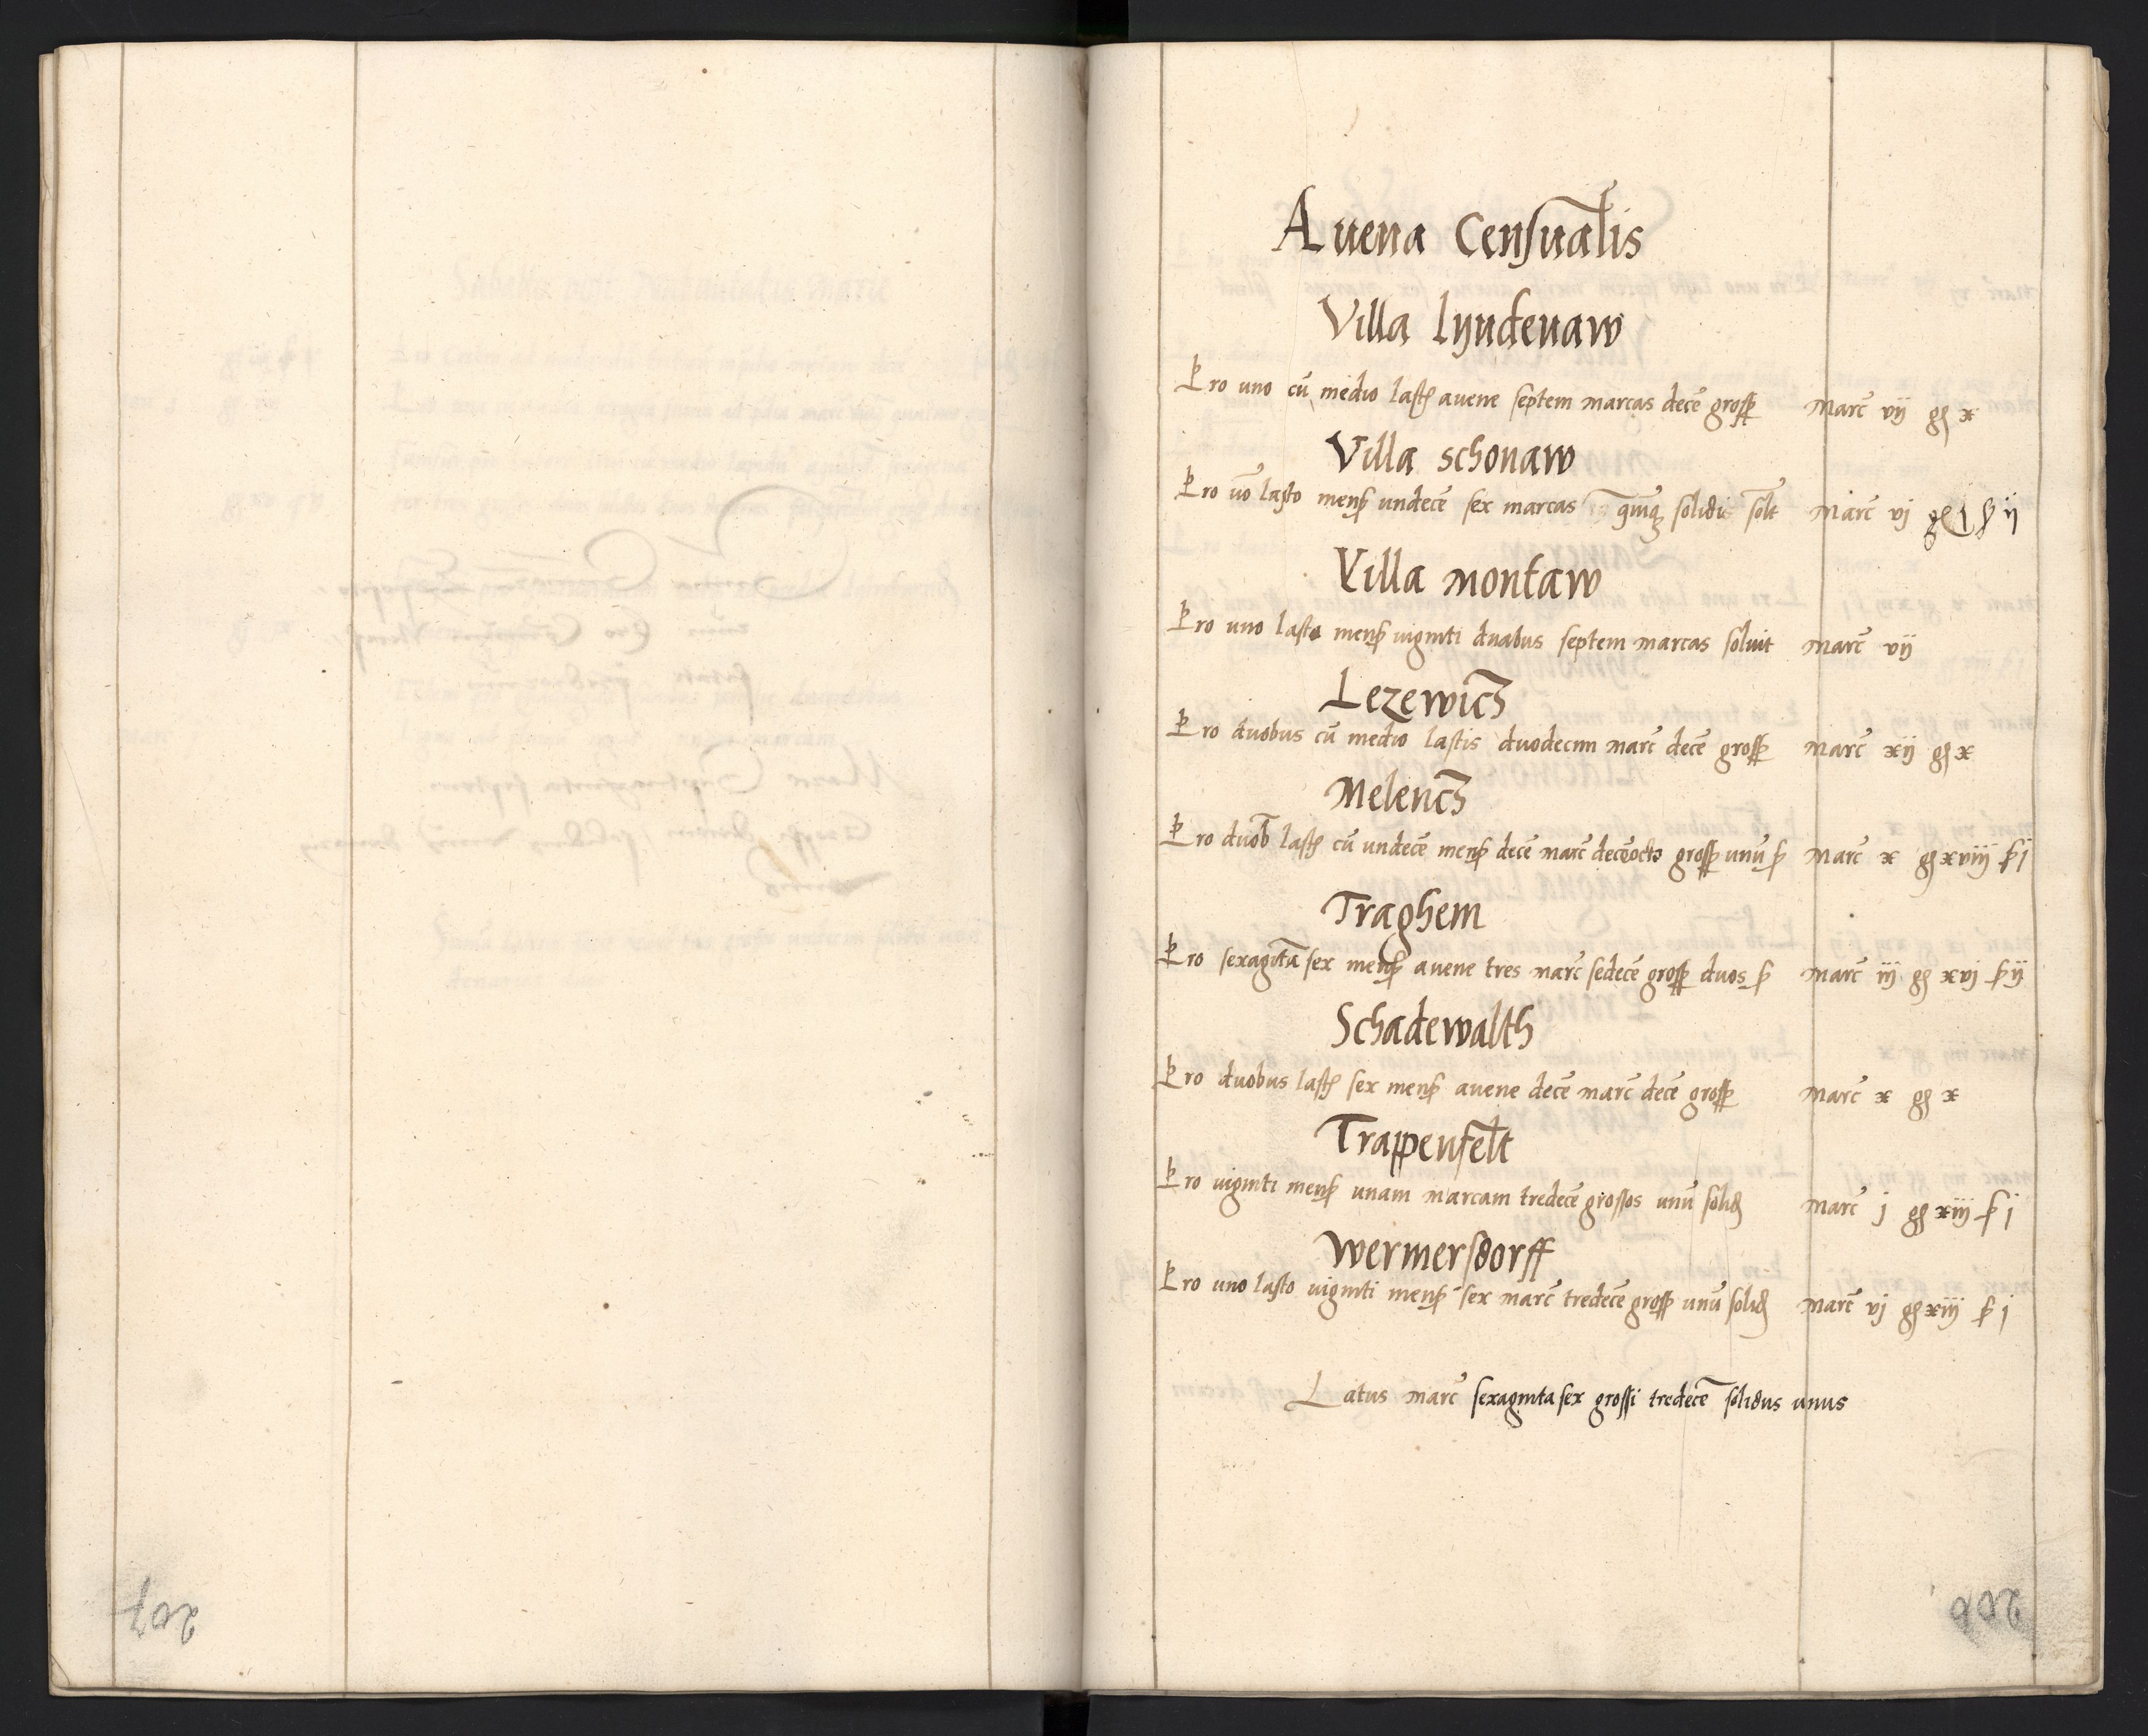 Auena Censualis
Villa lyndenaw
Pro uno cū medio lasth avene septem marcas decē gross
Marc̄ vij gs x
Villa schonaw
Pro uō lasto mens undecē sex marcas quinqz solidis solt
Marc̄ vj gs j s ij
Villa montaw
Pro uno lasto mens viginti duabus septem marcas soluit
Marc̄ vij
Lezewicz
Pro duobus cū medio lastis duodecim marc̄ decē gross
Marc̄ xij gs x
Melencz
Pro duob lasth cū undecē mens decē marc̄ decēocto gross unū s
Marc̄ x gs xviij s j
Traghem
Pro sexagīta sex mens avene tres marc̄ sedecē gross duos s
Marc̄ iij gs xvj s ij
Schadewalth
Pro duobus lasth sex mens avene decē marc̄ decē gross
Marc̄ x gs x
Trappenfelt
Pro viginti mens unam marcam tredecē grossos unū solid
Marc̄ j gs xiij s j
Wermersdorff
Pro uno lasto viginti mens sex marc̄ tredecē gross unū solid
Marc̄ vj gs xiij s j
Latus marc̄ sexaginta sex grossi tredecē solidus unus
207
206